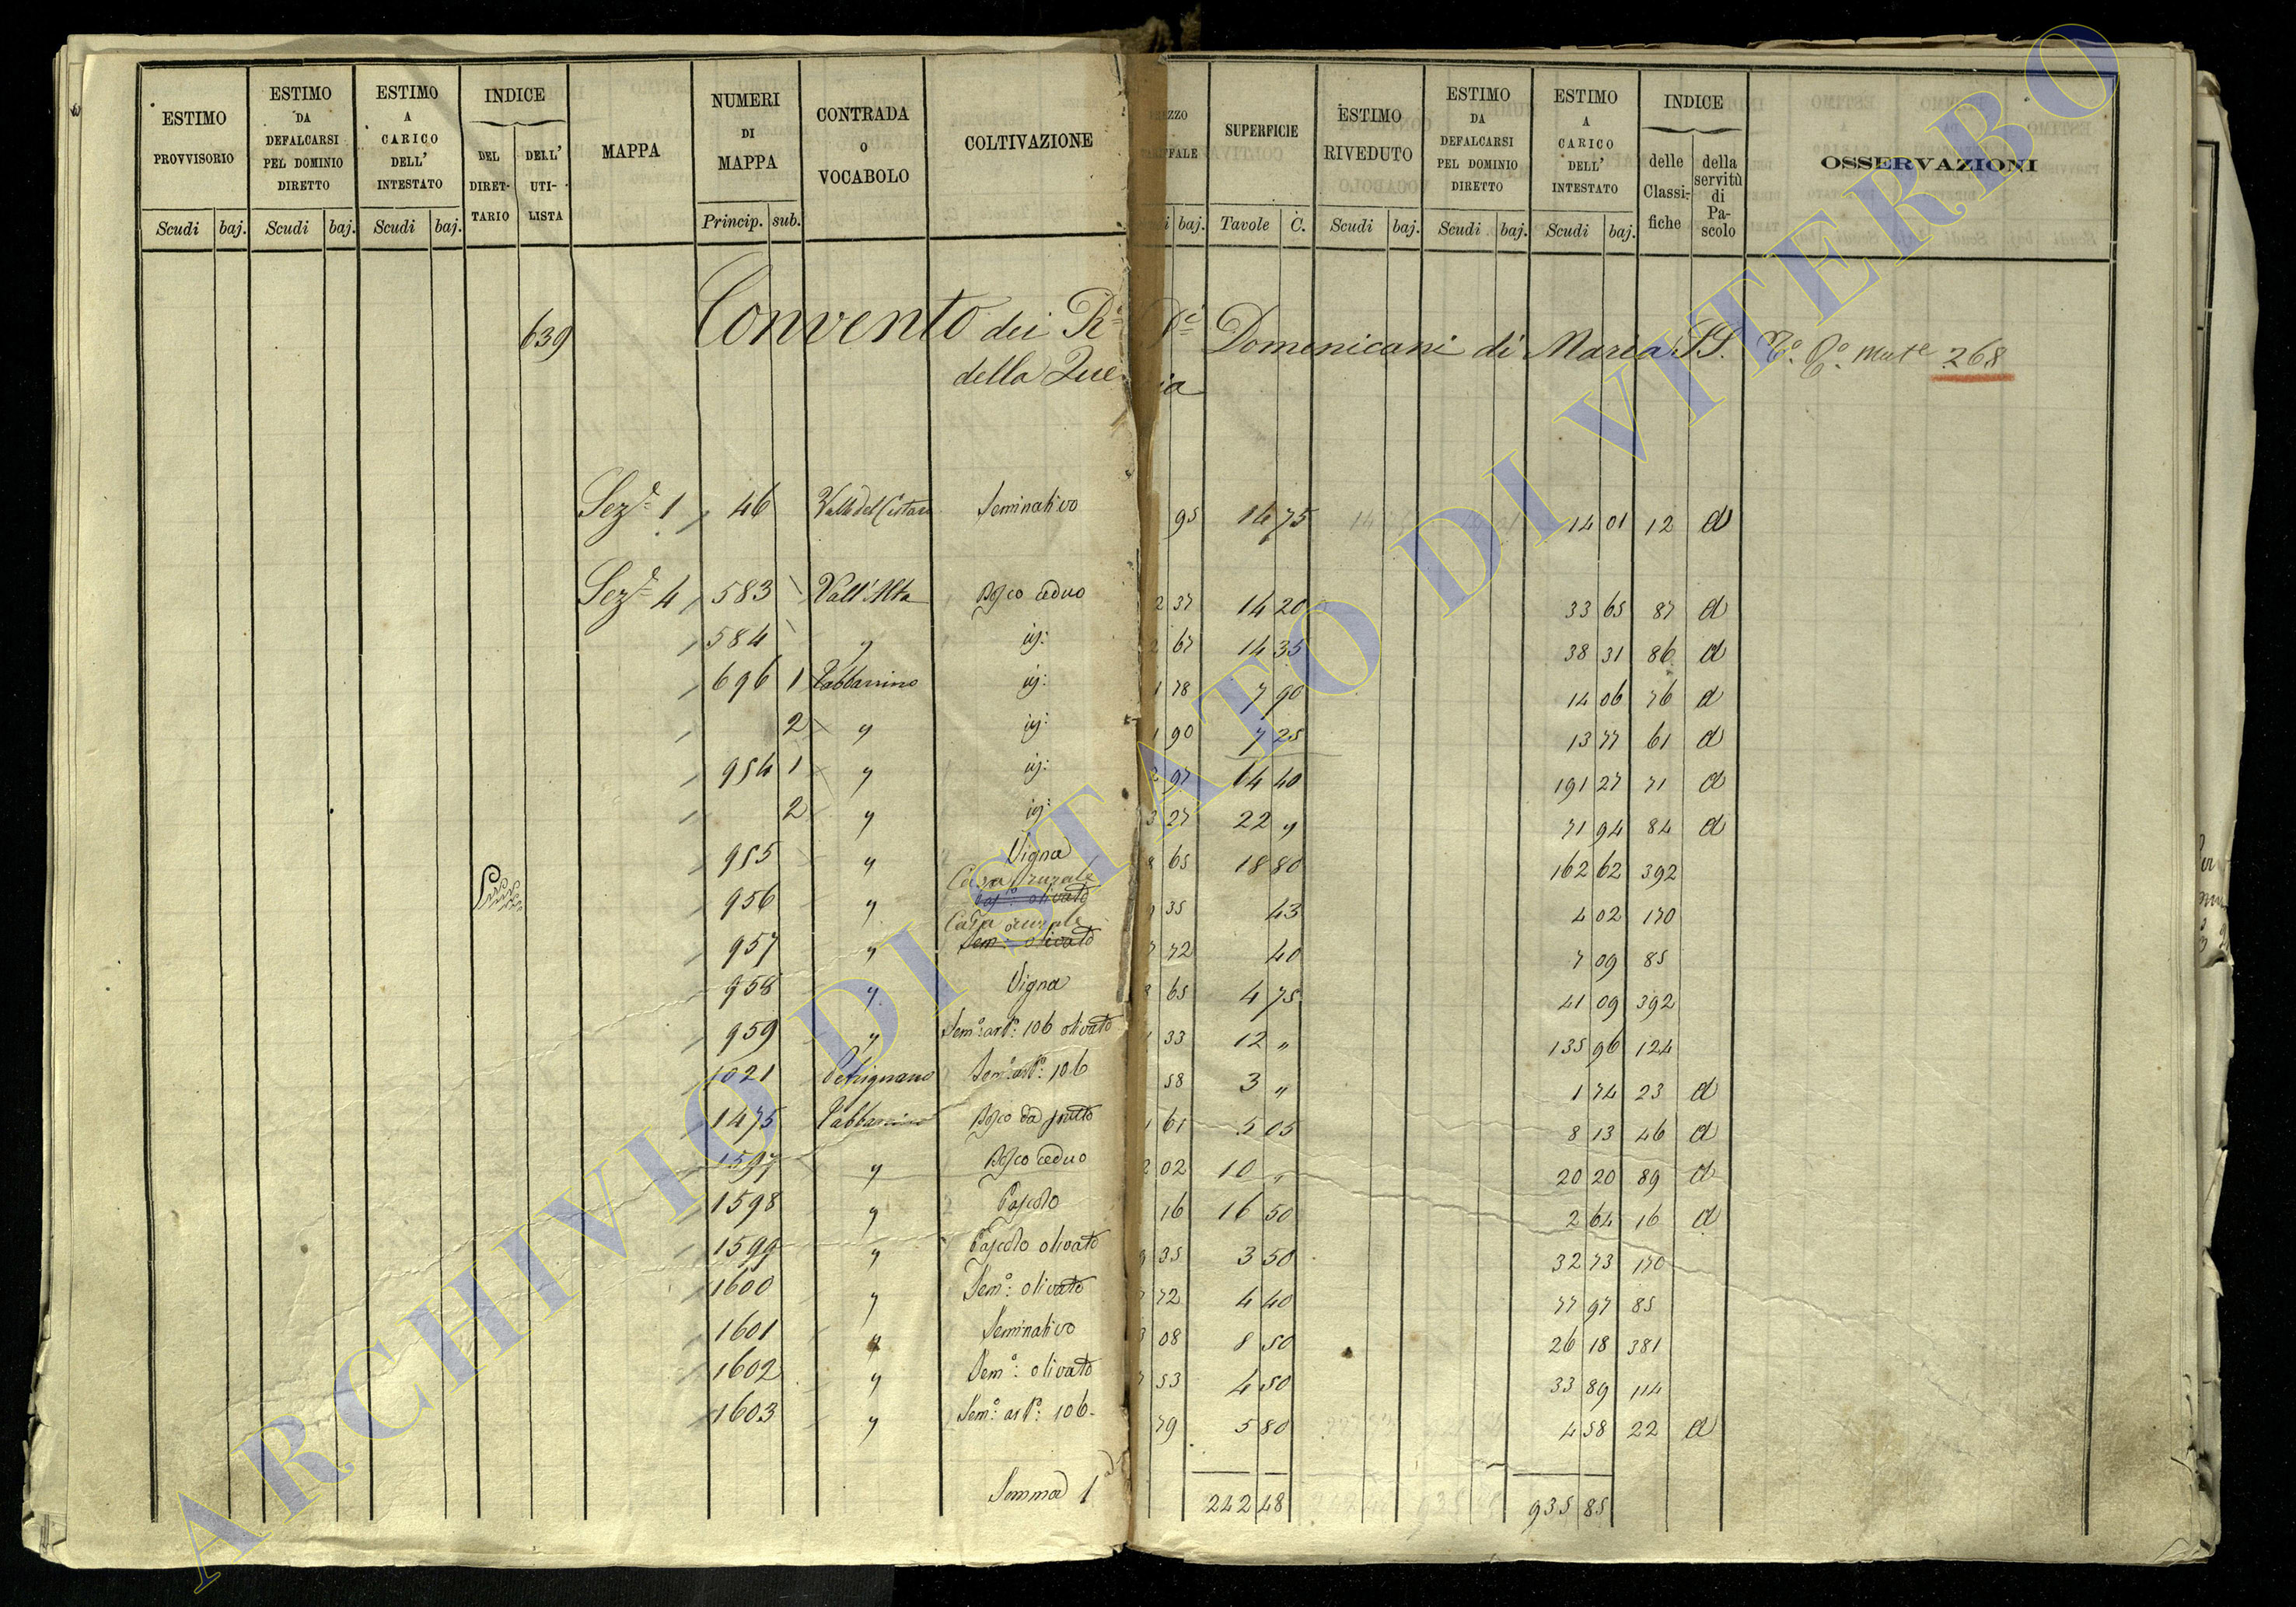 ESTIMO PROVVISORIO | ESTIMO DA DEFALCARSI PEL DOMINIO DIRETTO | ESTIMO A CARICO DELL' INTESTATO | INDICE | MAPPA | NUMERI DI MAPPA | CONTRADA O VOCABOLO | COLTIVAZIONE | TARIFFALE | SUPERFICIE | ESTIMO RIVEDUTO | ESTIMO DA DEFALCARSI PEL DOMINIO DIRETTO | ESTIMO A CARICO DELL' INTESTATO | INDICE | OSSERVAZIONI
DEL DIRETTARIO | DELL' UTILISTA | delle Classifiche | della servitù di Pascolo
Scudi | baj. | Scudi | baj. | Scudi | baj. | Princip. | sub. | baj. | Tavole | C. | Scudi | baj. | Scudi | baj. | Scudi | baj.
639 Convento dei Domenicani di Maria SS. 268
della Quercia
Sez.e 1 46 Seminativo 95 14 75 14 01 12 d
Sez.e 4 583 Vall'Alta Bosco ceduo 2 37 14 20 33 65 87 d
584 " id: 2 67 14 35 38 31 86 d
696 1 id: 1 78 7 90 14 06 76 d
2 " id: 1 90 7 25 13 77 61 d
954 1 " id: 2 97 64 40 191 27 71 d
2 " id: 3 27 22 " 71 94 84 d
955 " Vigna 8 65 18 80 162 62 392
Casa rurale
956 " Pas.o olivato 35 43 4 02 170
Casa rurale
957 " Sem.o olivato 72 40 7 09 85
958 " Vigna 8 65 4 75 41 09 392
959 " Sem.o art.o: 106 olivato 33 12 " 135 96 124
1021 Sem.o art.o: 106 58 3 " 1 74 23 d
1475 Bosco da frutto 1 61 5 05 8 13 46 d
1597 " Bosco ceduo 2 02 10 " 20 20 89 d
1598 " Pascolo 16 16 50 2 64 16 d
1599 " Pascolo olivato 35 3 50 32 73 170
1600 " Sem.o: olivato 72 4 40 77 97 85
1601 " Seminativo 3 08 8 50 26 18 381
1602 " Sem.o: olivato 53 4 50 33 89 114
1603 " Sem.o: art.o: 106 79 5 80 4 58 22 d
Somma 242 48 935 85
ARCHIVIO DI STATO DI VITERBO